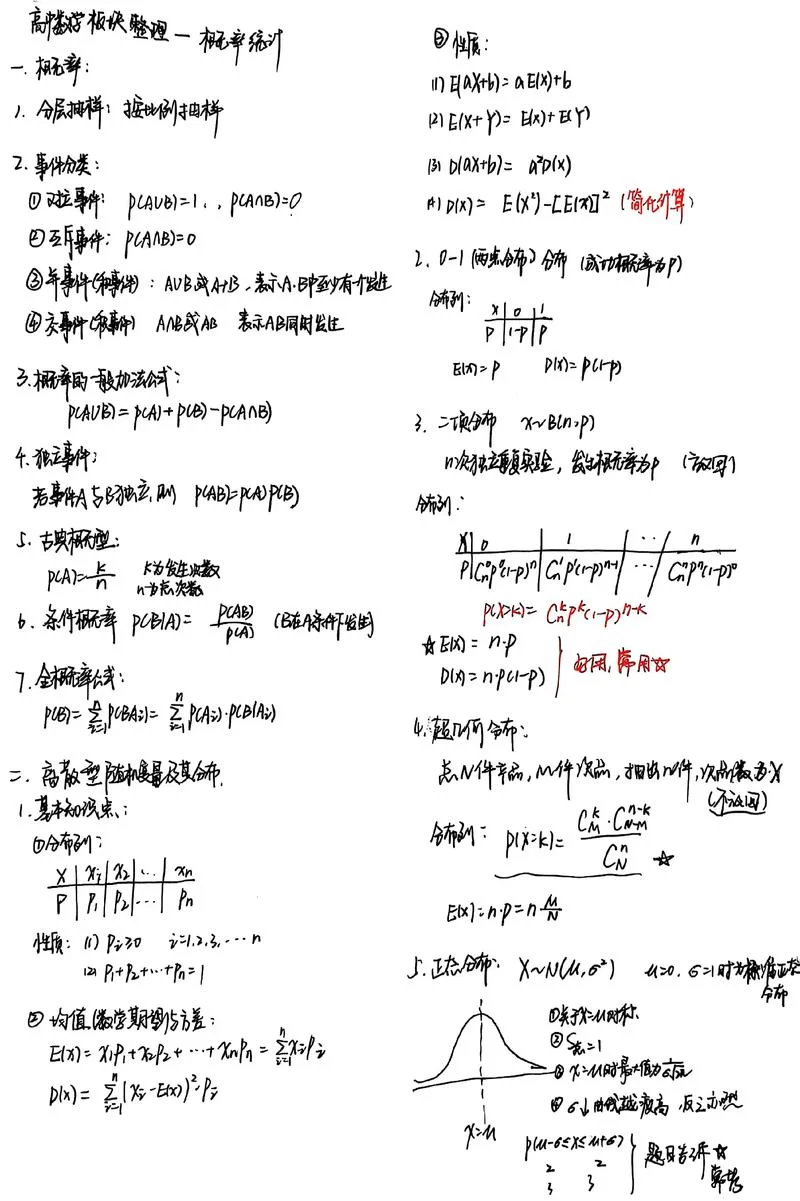 高中数学板块整理 — 概率统计
一. 概率:
1. 分层抽样: 按比例抽样
2. 事件分类:
① 对立事件: P(A∪B)=1., P(A∩B)=0
② 互斥事件: P(A∩B)=0
③ 并事件(和事件): A∪B或A+B, 表示A.B中至少有一个发生
④ 交事件(积事件) A∩B或AB 表示AB同时发生
3. 概率的一般加法公式:
P(A∪B)=P(A)+P(B)-P(A∩B)
4. 独立事件:
若事件A与B独立,则 P(AB)=P(A)P(B)
5. 古典概型:
P(A)=k/n k为发生次数
n为总次数
6. 条件概率 P(B|A)= P(AB)/P(A) (B在A条件下发生)
7. 全概率公式:
P(B)=∑_{i=1}^{n}P(BAi)=∑_{i=1}^{n}P(Ai)·P(B|Ai)
二. 离散型随机变量及其分布.
1. 基本知识点:
① 分布列:
X | xi | x2 | ... | xn
P | P1 | P2 | ... | Pn
性质: (1) Pi≥0 i=1,2,3,...n
(2) P1+P2+...+Pn=1
② 均值(数学期望)与方差:
E(x)=x1P1+x2P2+...+xnPn=∑_{i=1}^{n}xiPi
D(x)=∑_{i=1}^{n}(xi-E(x))²·Pi
③ 性质:
(1) E(aX+b)=aE(x)+b
(2) E(X+Y)=E(x)+E(Y)
(3) D(ax+b)=a²D(x)
(4) D(x)=E(x²)-[E(x)]² (简化计算)
2. 0-1(两点分布)分布 (成功概率为P)
分布列:
X | 0 | 1
P | 1-P | P
E(x)=P D(x)=P(1-P)
3. 二项分布 X~B(n,p)
n次独立重复实验, 发生概率为P (放回)
分布列:
X | 0 | 1 | ... | n
P | Cn⁰P⁰(1-P)ⁿ | Cn¹P¹(1-P)ⁿ⁻¹ | ... | CnⁿPⁿ(1-P)⁰
P(X=k)=CnᵏPᵏ(1-P)ⁿ⁻ᵏ
☆ E(x)=n·P
D(x)=n·P(1-P)
可用,常用☆
4. 超几何分布:
总N件产品, M件次品, 抽出n件, 次品数为X
(不放回)
分布列: P(X=k)= C_M^k·C_{N-M}^{n-k}/C_N^n ☆
E(x)=n·P=n·M/N
5. 正态分布: X~N(μ,σ²) μ=0, σ=1时为标准正态
分布
① 关于X=μ对称.
② S总=1
③ X=μ时最大值为1/(σ√2π)
④ σ↓曲线越瘦高, 反之亦然
X=μ
P(μ-σ≤X≤μ+σ)
2 2
3 3
题目告诉☆